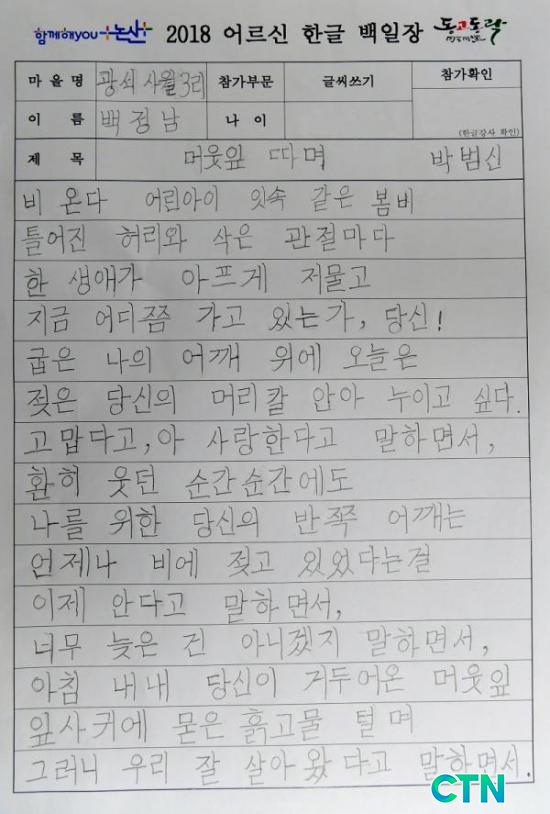 함께해you 논산 2018 어르신 한글 백일장 동고동락
마을명 광석 사월3리 참가부문 글씨쓰기 참가확인
이름 백정남 나이
(한글강사 확인)
제목 머윗잎 따며 박범신
비 온다 어린아이 잇속 같은 봄비
틀어진 허리와 삭은 관절마다
한 생애가 아프게 저물고
지금 어디쯤 가고 있는가, 당신!
굽은 나의 어깨 위에 오늘은
젖은 당신의 머리칼 안아 누이고 싶다.
고맙다고, 아 사랑한다고 말하면서,
환히 웃던 순간순간에도
나를 위한 당신의 반쪽 어깨는
언제나 비에 젖고 있었다는걸
이제 안다고 말하면서,
너무 늦은 건 아니겠지 말하면서,
아침 내내 당신이 거두어온 머윗잎
잎사귀에 묻은 흙고물 털며
그러니 우리 잘 살아왔다고 말하면서.
CTN